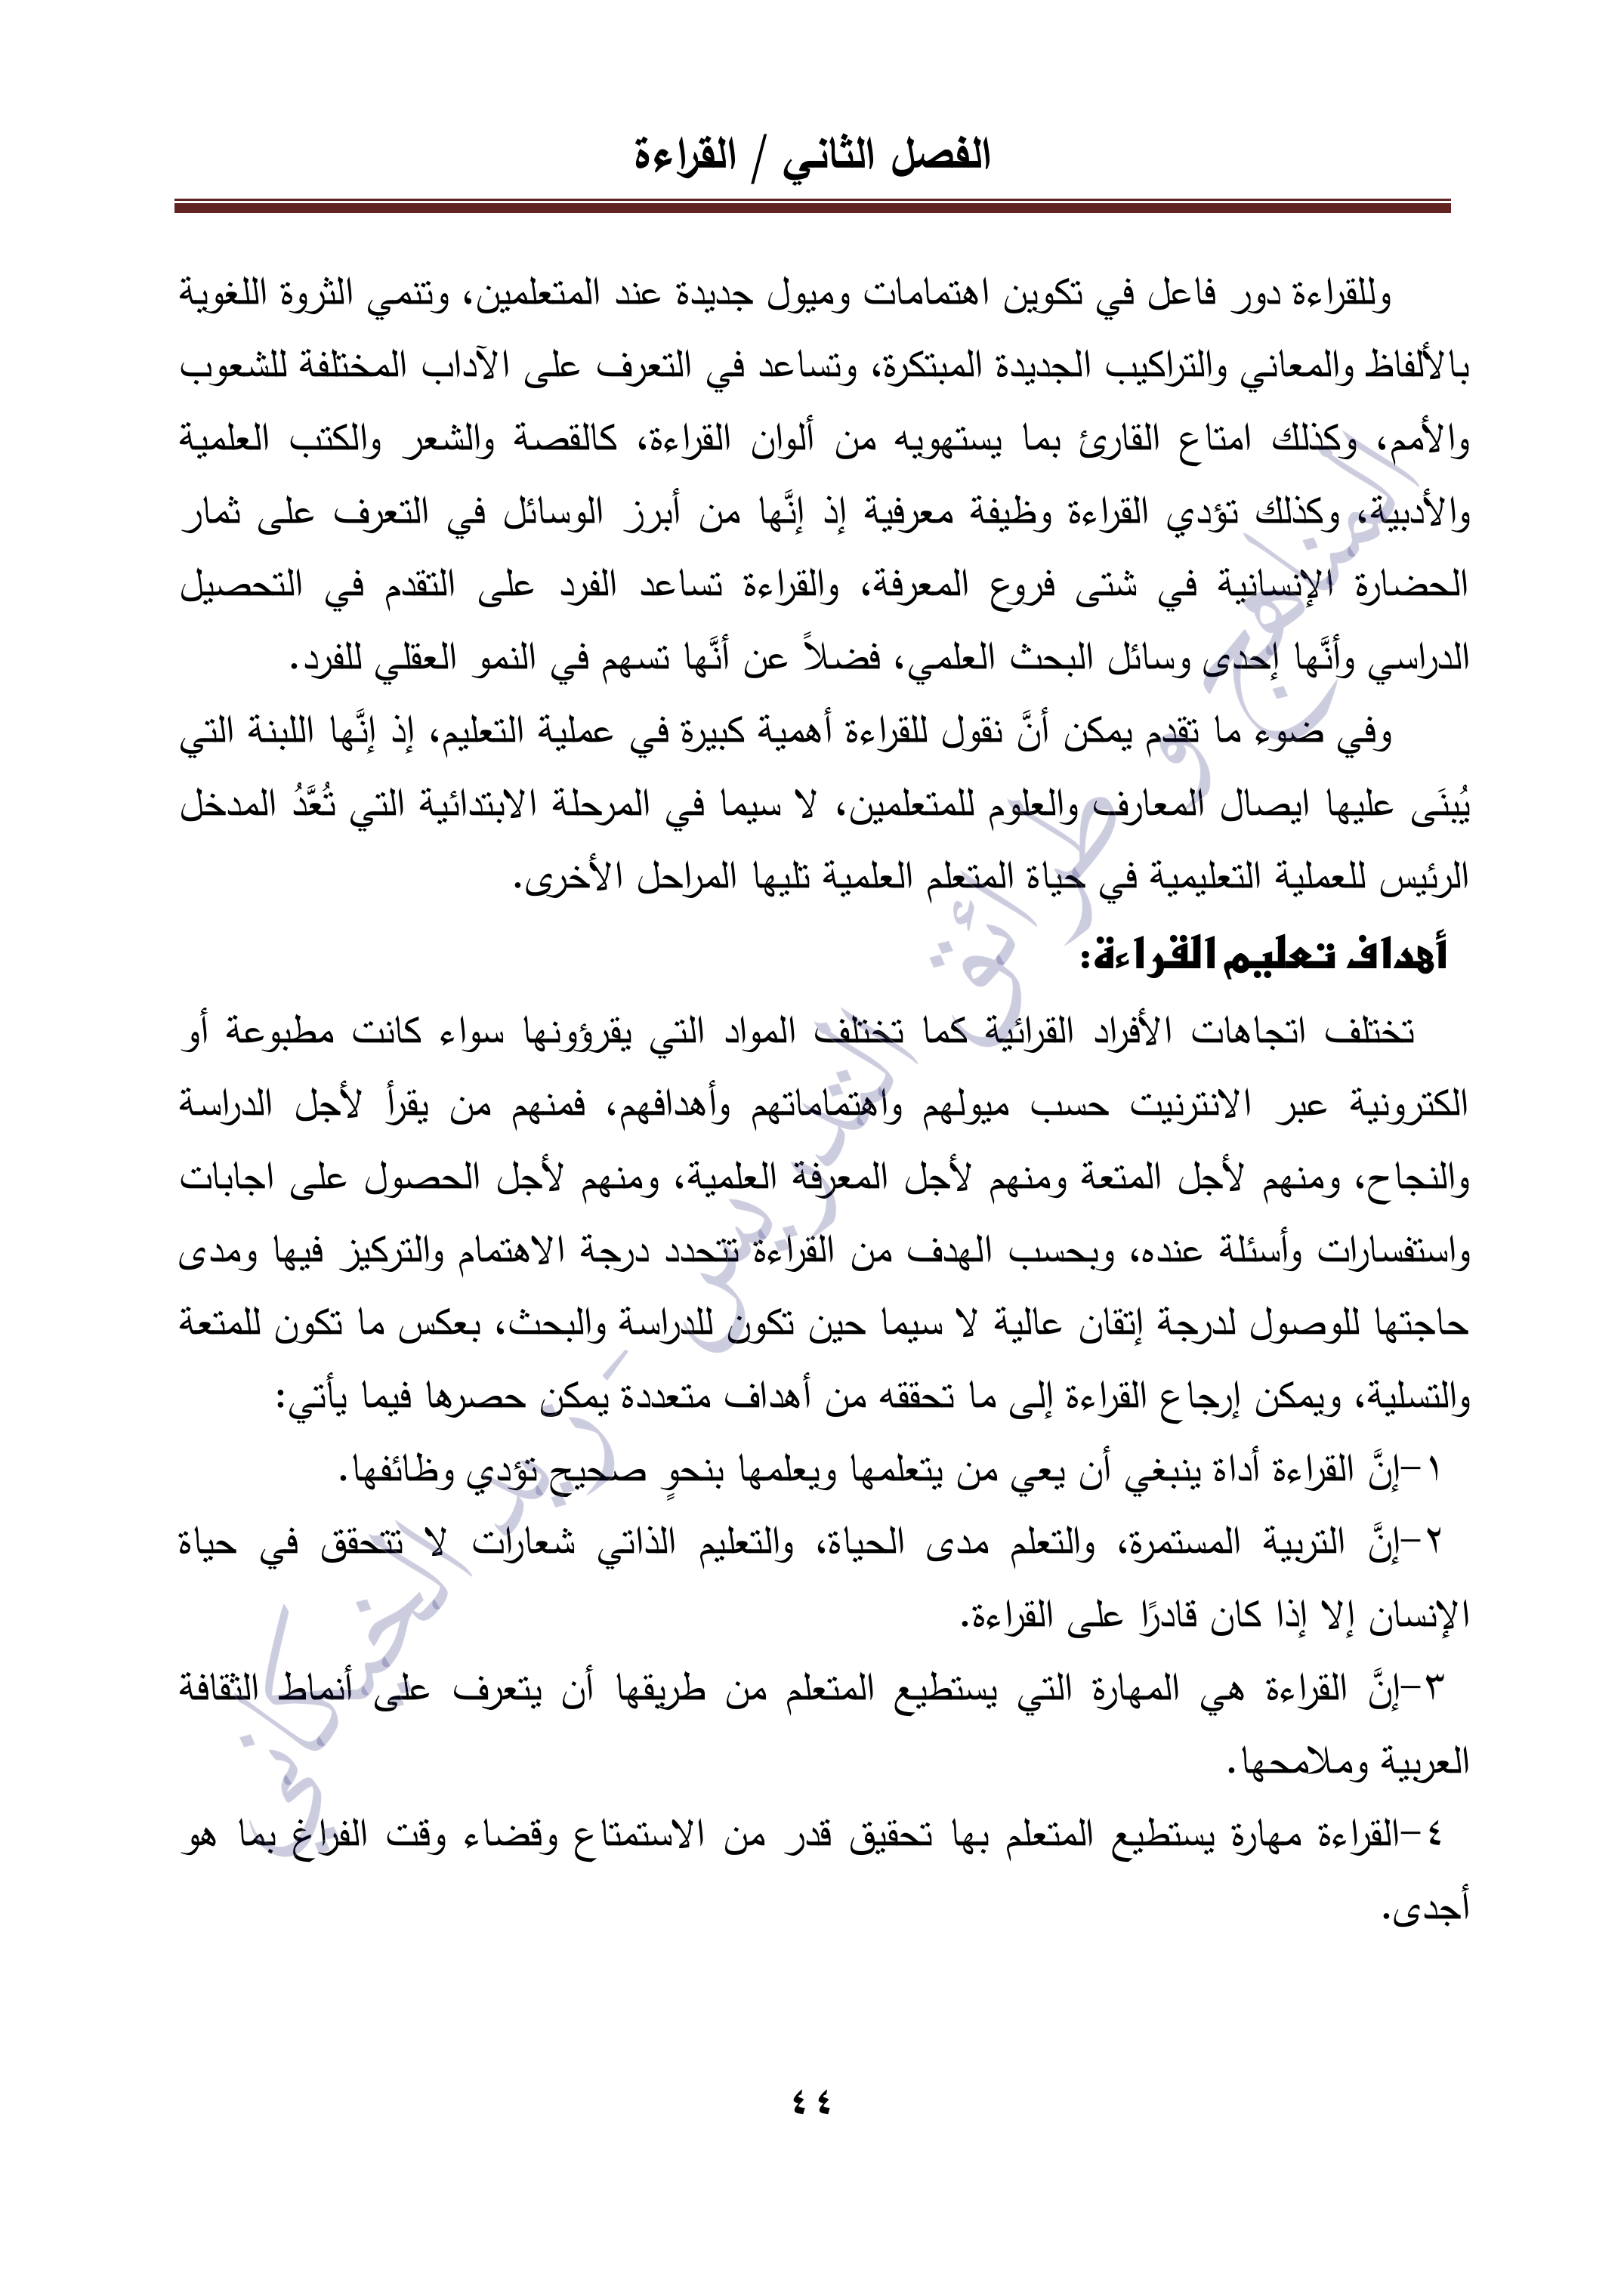 الفصل الثاني / القراءة
وللقراءة دور فاعل في تكوين اهتمامات وميول جديدة عند المتعلمين، وتنمي الثروة اللغوية
بالألفاظ والمعاني والتراكيب الجديدة المبتكرة، وتساعد في التعرف على الآداب المختلفة للشعوب
والأمم، وكذلك امتاع القارئ بما يستهويه من ألوان القراءة، كالقصة والشعر والكتب العلمية
والأدبية، وكذلك تؤدي القراءة وظيفة معرفية إذ إنَّها من أبرز الوسائل في التعرف على ثمار
الحضارة الإنسانية في شتى فروع المعرفة، والقراءة تساعد الفرد على التقدم في التحصيل
الدراسي وأنَّها إحدى وسائل البحث العلمي، فضلاً عن أنَّها تسهم في النمو العقلي للفرد.
وفي ضوء ما تقدم يمكن أنَّ نقول للقراءة أهمية كبيرة في عملية التعليم، إذ إنَّها اللبنة التي
يُبنَى عليها ايصال المعارف والعلوم للمتعلمين، لا سيما في المرحلة الابتدائية التي تُعَّدُ المدخل
الرئيس للعملية التعليمية في حياة المتعلم العلمية تليها المراحل الأخرى.
أهداف تعليم القراءة:
تختلف اتجاهات الأفراد القرائية كما تختلف المواد التي يقرؤونها سواء كانت مطبوعة أو
الكترونية عبر الانترنيت حسب ميولهم واهتماماتهم وأهدافهم، فمنهم من يقرأ لأجل الدراسة
والنجاح، ومنهم لأجل المتعة ومنهم لأجل المعرفة العلمية، ومنهم لأجل الحصول على اجابات
واستفسارات وأسئلة عنده، وبحسب الهدف من القراءة تتحدد درجة الاهتمام والتركيز فيها ومدى
حاجتها للوصول لدرجة إتقان عالية لا سيما حين تكون للدراسة والبحث، بعكس ما تكون للمتعة
والتسلية، ويمكن إرجاع القراءة إلى ما تحققه من أهداف متعددة يمكن حصرها فيما يأتي:
١-إنَّ القراءة أداة ينبغي أن يعي من يتعلمها ويعلمها بنحوٍ صحيح تؤدي وظائفها.
٢-إنَّ التربية المستمرة، والتعلم مدى الحياة، والتعليم الذاتي شعارات لا تتحقق في حياة
الإنسان إلا إذا كان قادرًا على القراءة.
٣-إنَّ القراءة هي المهارة التي يستطيع المتعلم من طريقها أن يتعرف على أنماط الثقافة
العربية وملامحها.
٤-القراءة مهارة يستطيع المتعلم بها تحقيق قدر من الاستمتاع وقضاء وقت الفراغ بما هو
أجدى.
٤٤
المناهج و طرائق التدريس - زيد الخيكاني